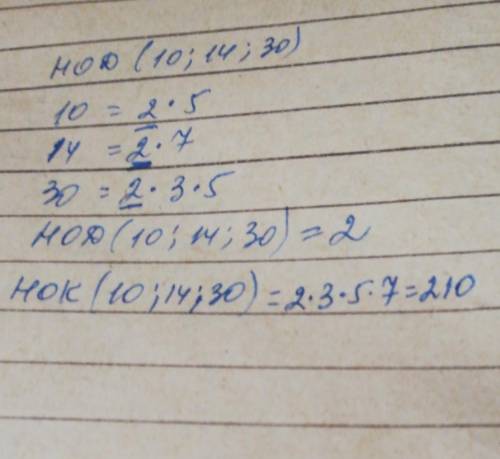 НОД (10; 14; 30)
10 = 2 · 5
14 = 2 · 7
30 = 2 · 3 · 5
НОД (10; 14; 30) = 2
НОК (10; 14; 30) = 2·3·5·7=210